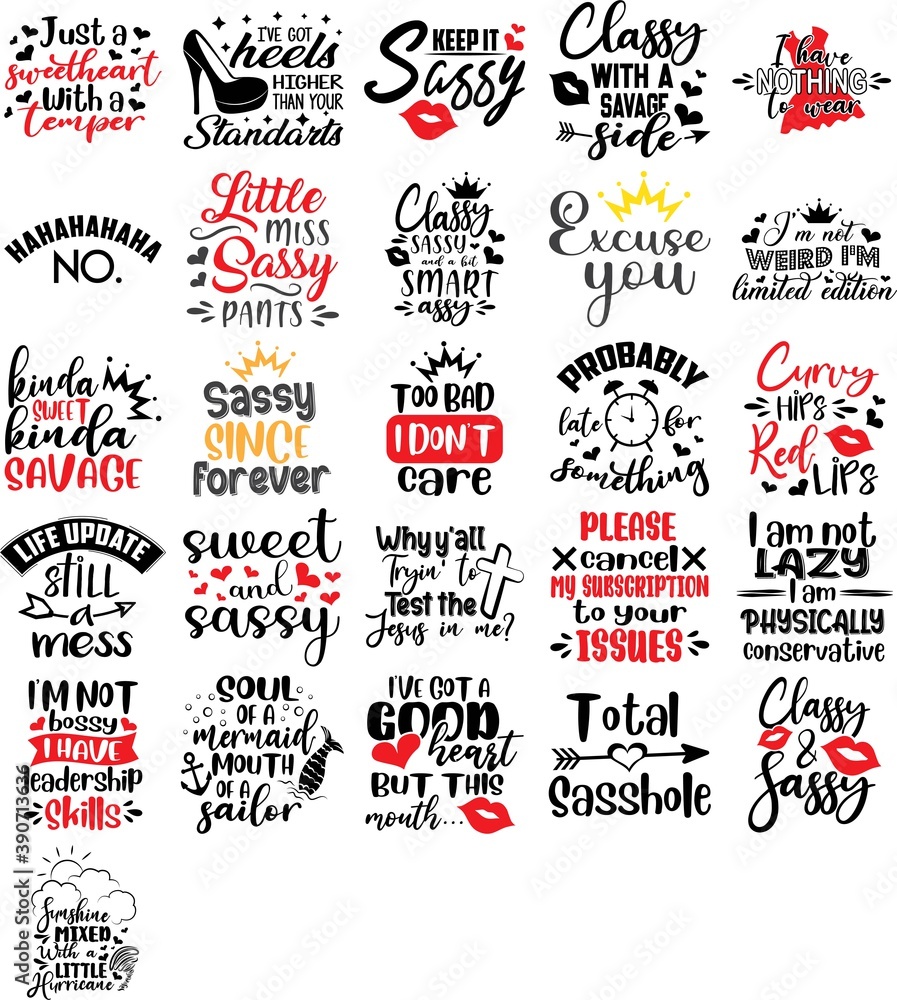 Just a
sweetheart
With a
temper
I'VE GOT
heels
HIGHER
THAN YOUR
Standarts
KEEP IT
Sassy
Classy
WITH A
SAVAGE
side
I have
NOTHING
to wear
HAHAHAHAHA
NO.
Little
MISS
Sassy
PANTS
Classy
SASSY
and a bit
SMART
assy
Excuse
you
I'm not
WEIRD I'M
limited edition
kinda
SWEET
kinda
SAVAGE
Sassy
SINCE
Forever
TOO BAD
I DON'T
care
PROBABLY
late for
something
Curvy
HIPS
Red
LIPS
LIFE UPDATE
still
a
mess
sweet
and
sassy
Why y'all
Tryin' to
Test the
Jesus in me?
PLEASE
cancel
MY SUBSCRIPTION
to your
ISSUES
I am not
LAZY
I am
PHYSICALLY
conservative
I'M NOT
bossy
I HAVE
leadership
Skills
SOUL
OF A
mermaid
MOUTH
OF A
sailor
I'VE GOT A
GOOD
heart
BUT THIS
mouth...
Total
Sasshole
Classy
&
Sassy
Sunshine
MIXED
With a
LITTLE
Hurricane
Adobe Stock | #390713636